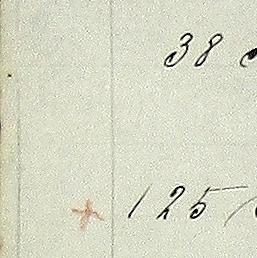 38
+ 125